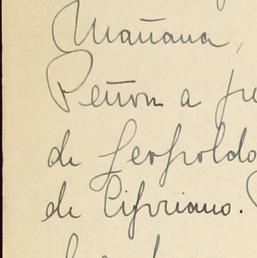 Mañana,
Peñon a
de Leopoldo
de Cipriano.